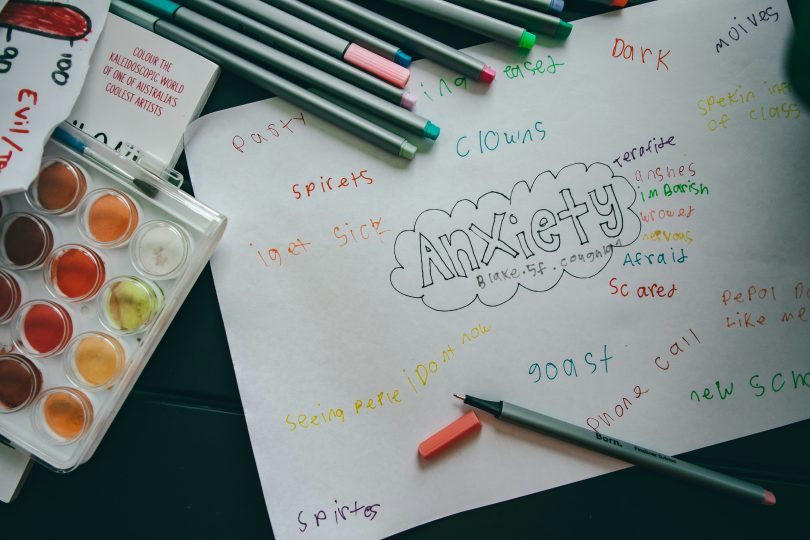 100
Evil/
COLOUR THE
KALEIDOSCOPIC WORLD
OF ONE OF AUSTRALIA'S
COOLEST ARTISTS
DARK
moives
ing
eased
party
clowns
spekin
of class
spirets
Terafite
anshes
imBarish
wrowet
nervous
Afraid
Scared
iget sick
Anxiety
Blake.5f.coughlan
pepol
Like me
seeing peple iDont now
goast
phone call
new
Born.
spirtes